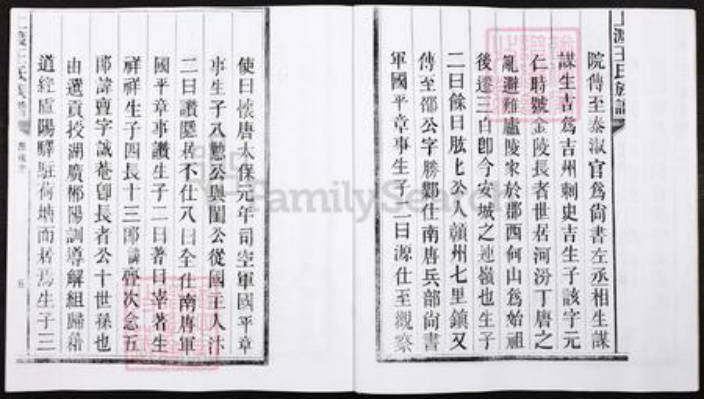 院傳至泰淑官爲尚書左丞相生謀
謀生吉爲吉州刺史吉生子該字元
仁時號金陵長者世居河汾丁唐之
亂避難廬陵家於郡西何山爲始祖
後遷三白即今安城之連嶺也生子
二曰餘曰肱七公人贛州七里鎮又
傳至邵公字勝鄹仕南唐兵部尚書
軍國平章事生子二曰源仕至觀察
使曰懷唐太保元年司空軍國平章
事生子八懃公與閶公從國主入汴
二曰讚隱居不仕八曰全仕南唐軍
國平章事讚生子二曰著曰宰著生
祥祥生子四長十三郎譸登次念五
郎諱賣字誠菴卽長者公十世孫也
由選貢授湖廣郴陽訓導解組歸籍
道經廬陽驛駐荷塘而居焉生子三
王氏族譜
五
FamilySearch